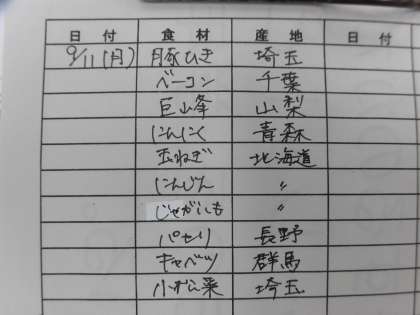 日付 食材 産地 日付
9/11(月) 豚ひき 埼玉
ベーコン 千葉
巨峰 山梨
にんにく 青森
玉ねぎ 北海道
にんじん 〃
じゃがいも 〃
パセリ 長野
キャベツ 群馬
小松菜 埼玉